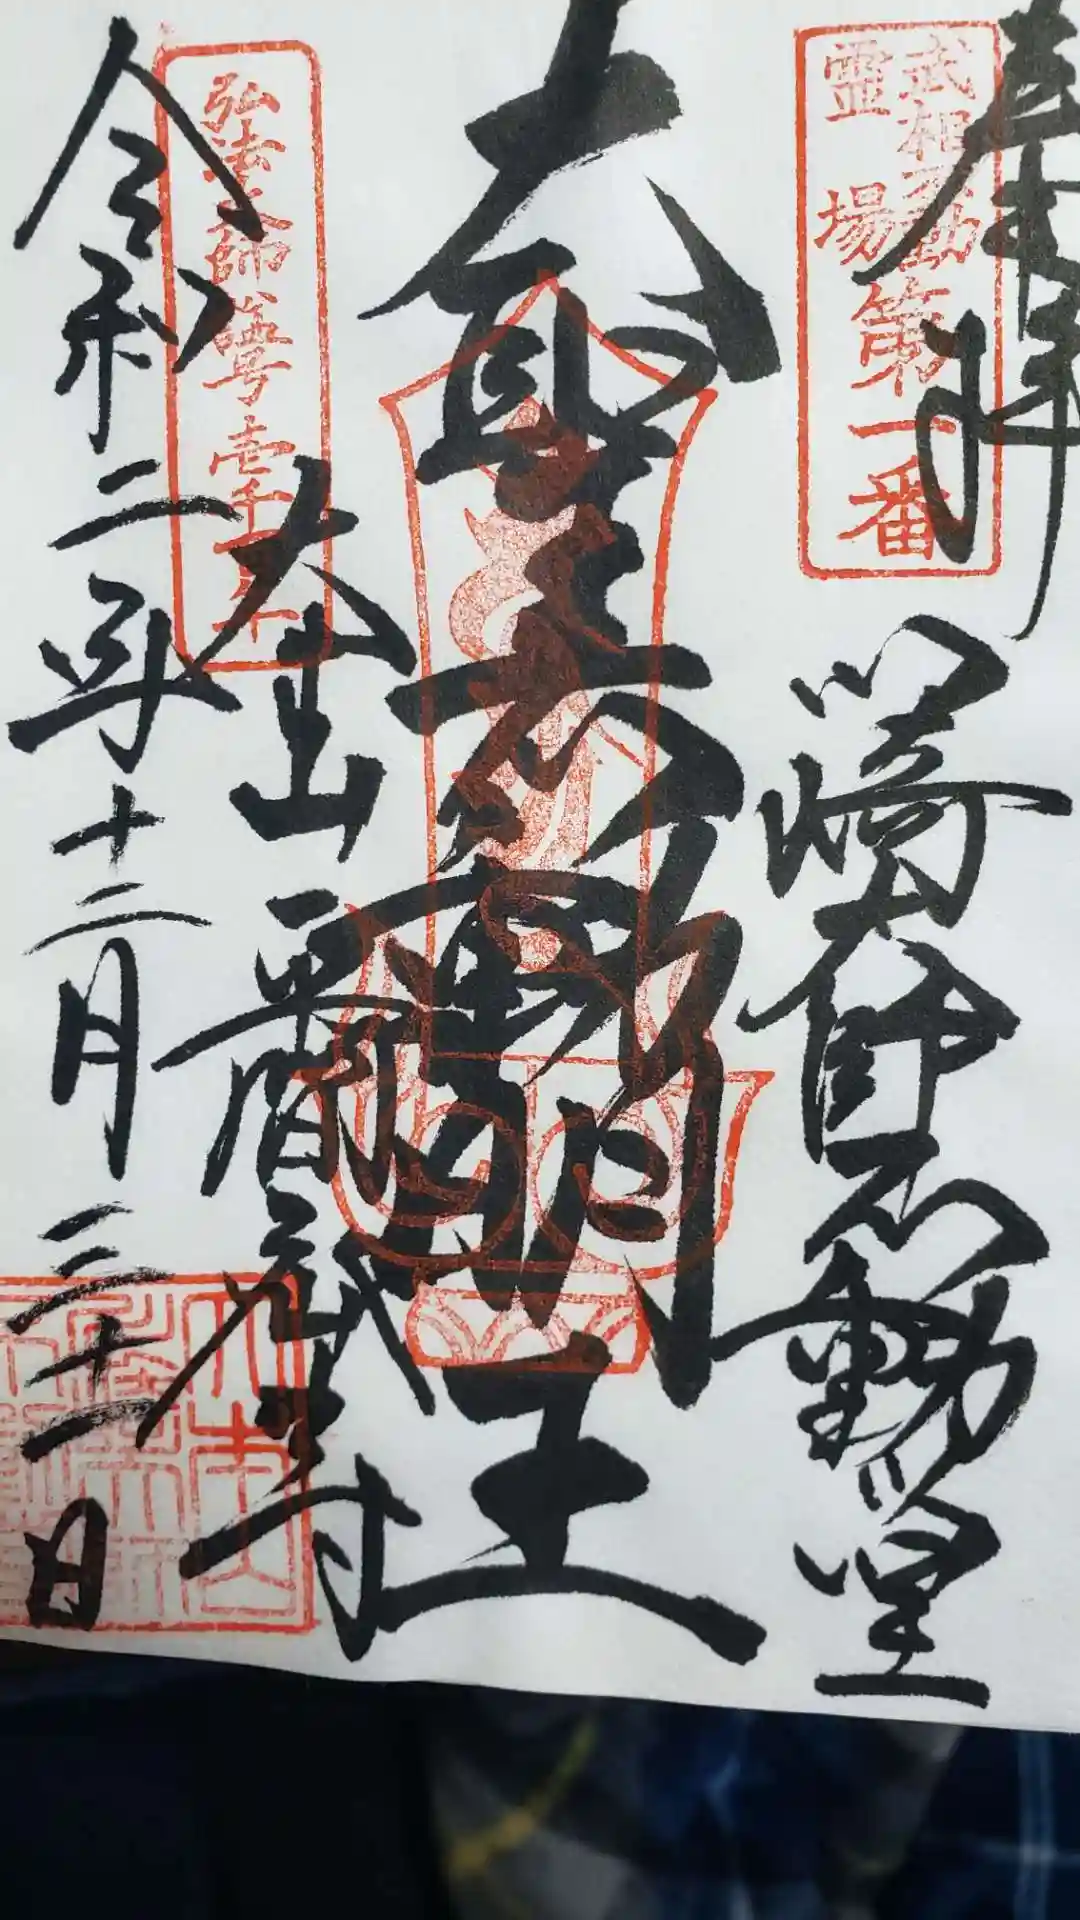 奉拝
武相不動
靈場
第一番
川崎大師不動堂
大聖不動明王
弘法大師尊号壱千百年
大本山
令和二年十二月三十一日